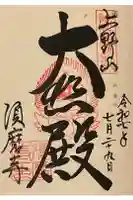 上野山
令和七年
七月二十九日
大悲殿
須磨寺